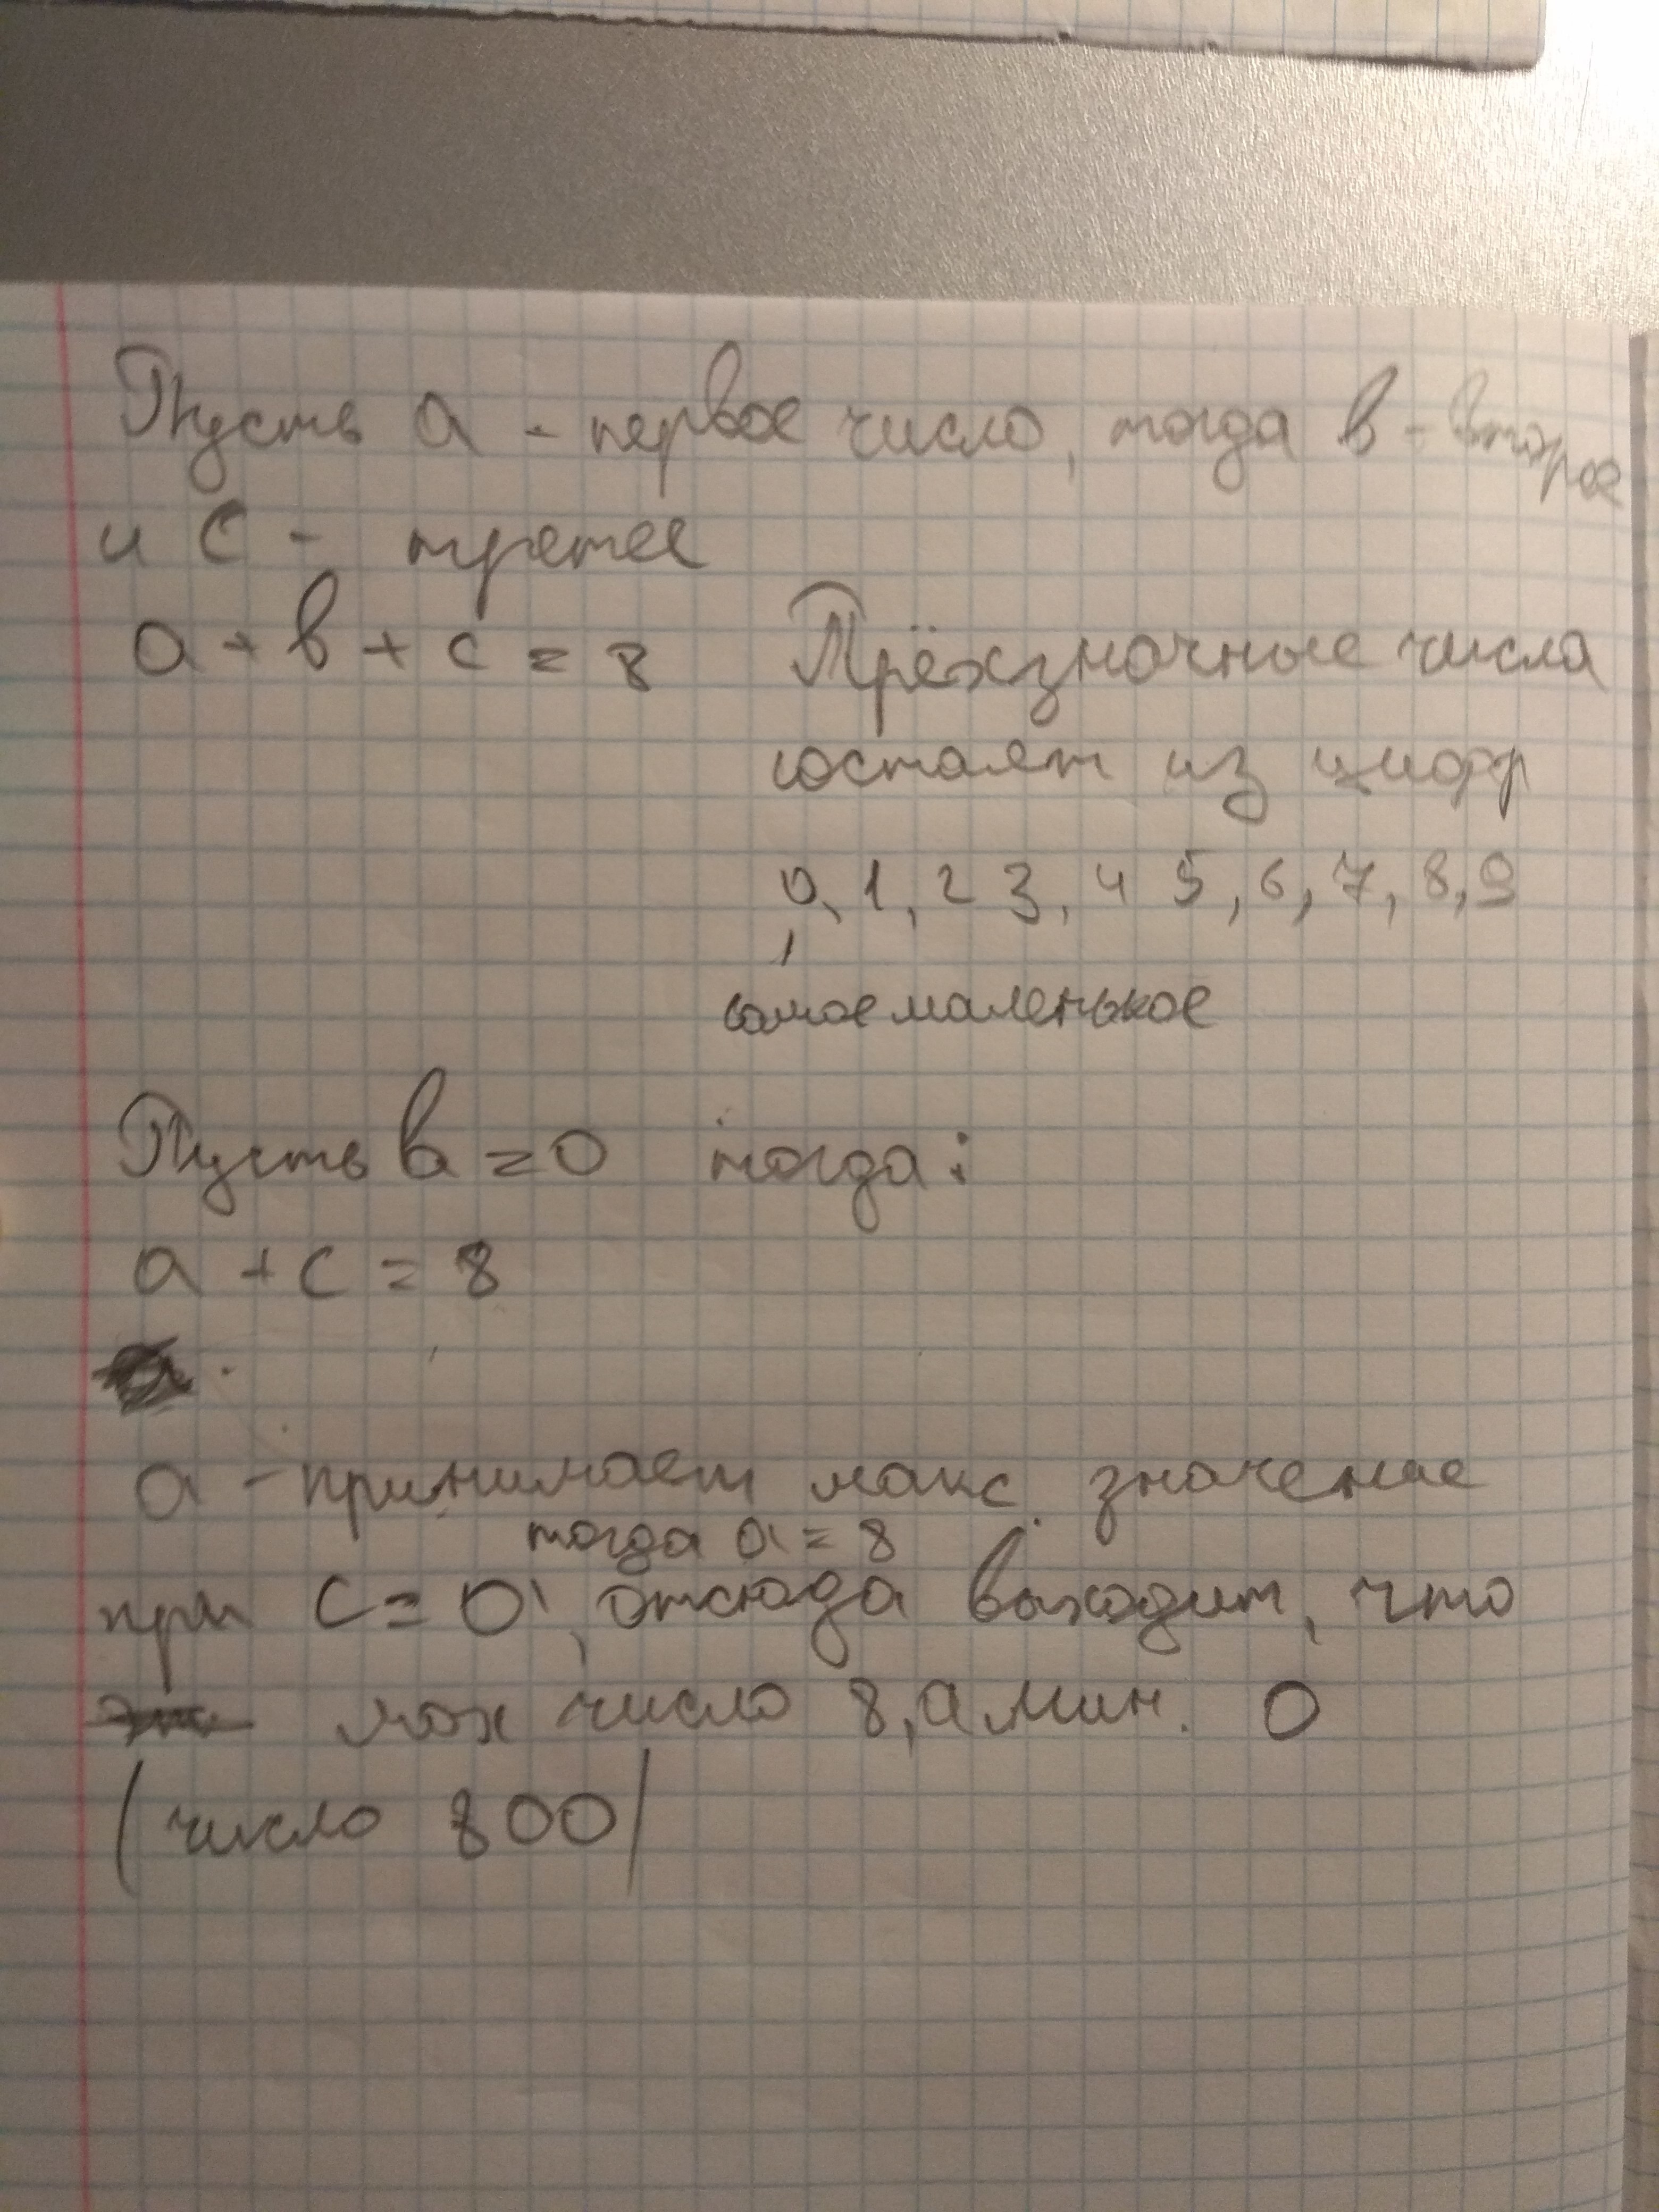 Пусть а - первое число, тогда в - второе
и С - третее
а + в + с = 8
Трёхзначные числа
состоят из цифр
0, 1, 2 3, 4 5, 6, 7, 8, 9
самое маленькое
Пусть в = 0 тогда:
а + с = 8
а - принимает макс. значение
тогда а = 8
при с = 0, отсюда выходит, что
мах число 8, а мин. 0
(число 800)